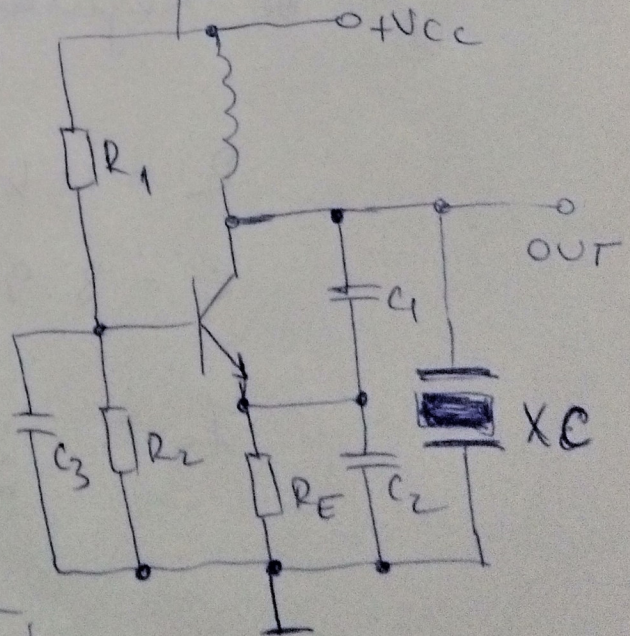 +VCC
R1
OUT
C1
C3
R2
RE
C2
XC